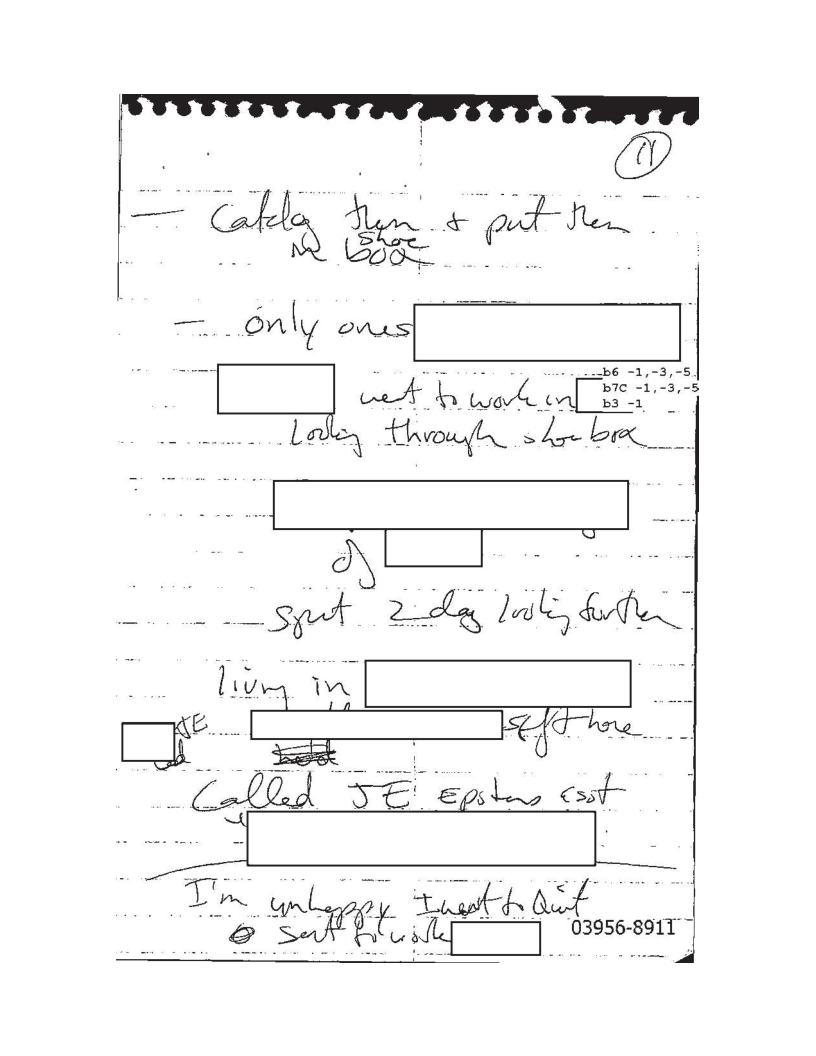 11
— Catalog them & put them
in shoe box
— only ones
b6 -1,-3,-5
b7C -1,-3,-5
b3 -1
went to work in
Looking through shoe box
of
spent 2 day looking further
living in
JE
Called JE Epsteins
I'm unhappy I want to Quit
sent to work
03956-8911